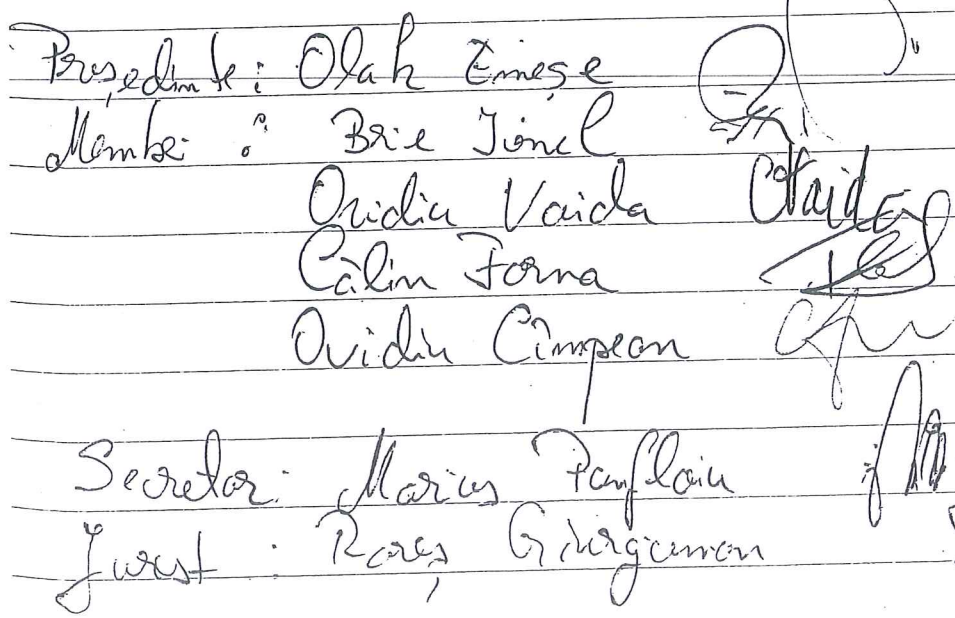 Preşedinte: Olah Emeşe
Membri: Brie Ionel
Ovidiu Vaida
Călin Forna
Ovidiu Cîmpean
Secretar: Marius Panfloiu
Jurist: Rareş Giurgiuman